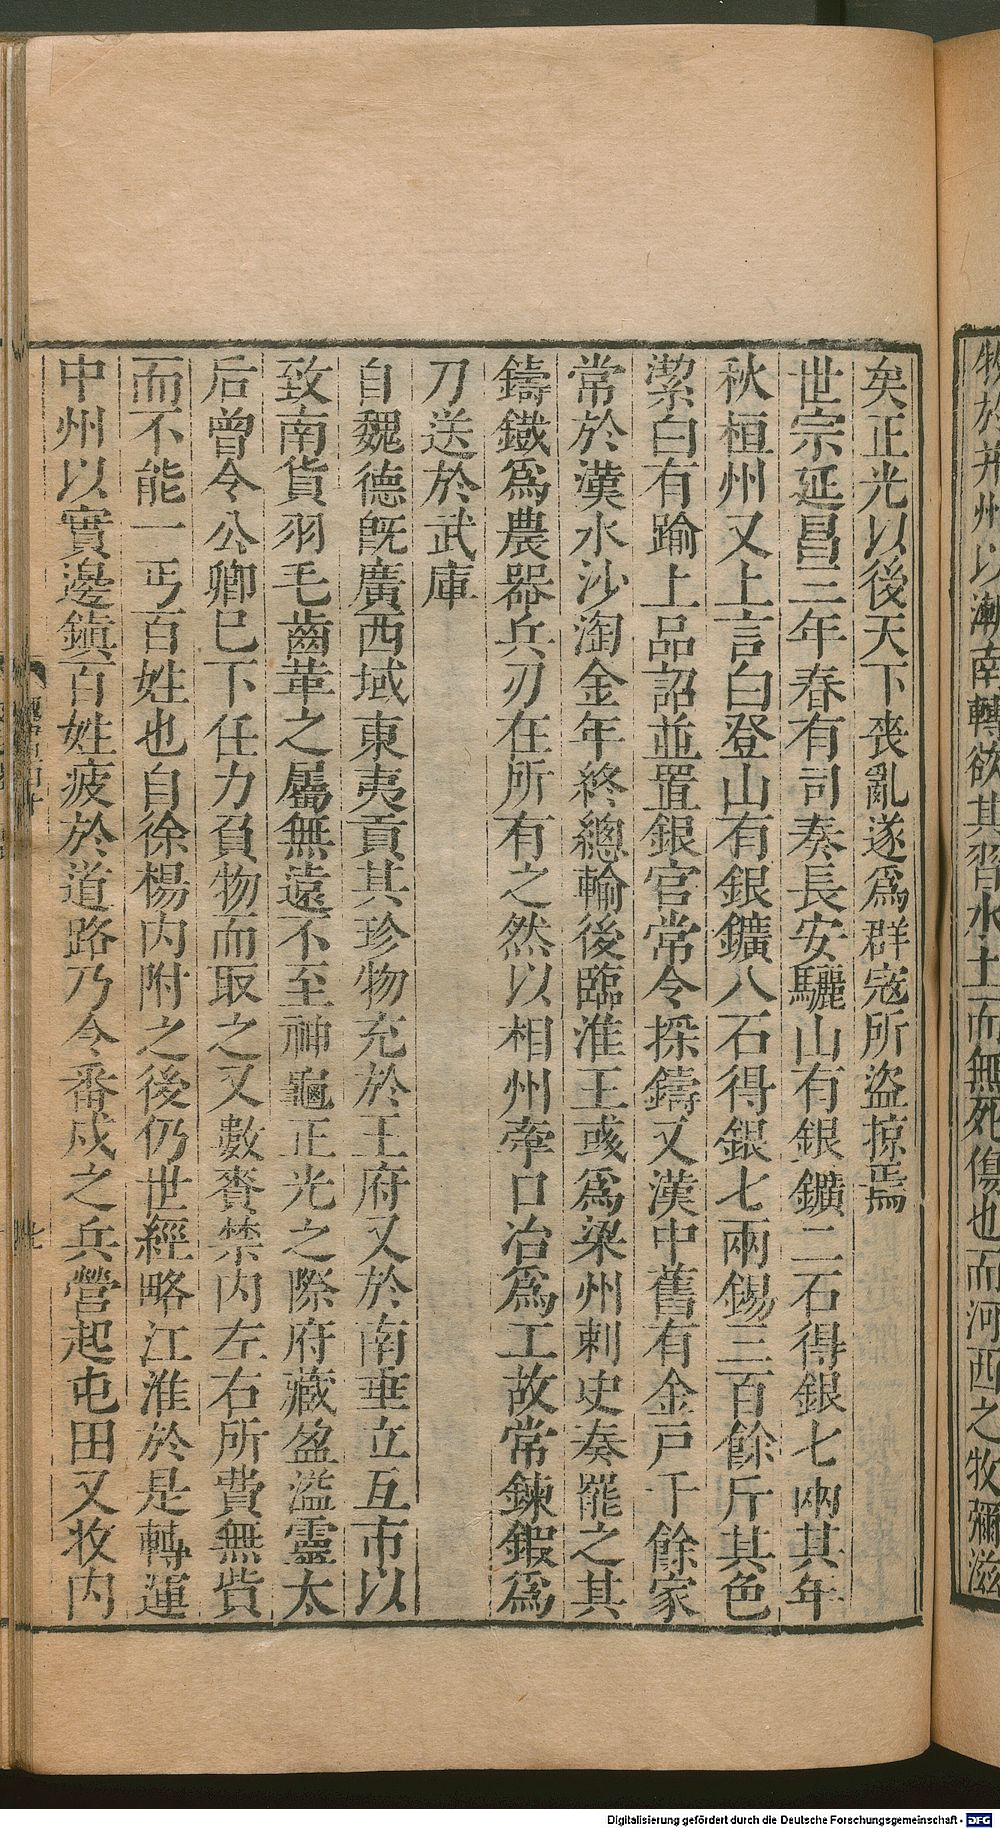 牧於并州以漸南轉欲其習水土而無死傷也而河西之牧彌滋
矣正光以後天下喪亂遂爲群寇所盜掠焉
世宗延昌三年春有司奏長安驪山有銀鑛二石得銀七兩其年
秋桓州又上言白登山有銀鑛八石得銀七兩錫三百餘斤其色
潔白有踰上品詔並置銀官常令採鑄又漢中舊有金戸千餘家
常於漢水沙淘金年終總輸後臨淮王彧爲梁州刺史奏罷之其
鑄鐵爲農器兵刃在所有之然以相州牽口冶爲工故常鍊鍛爲
刀送於武庫
自魏德旣廣西域東夷貢其珍物充於王府又於南垂立互市以
致南貨羽毛齒革之屬無遠不至神龜正光之際府藏盈溢靈太
后曾令公卿巳下任力負物而取之又數賚禁内左右所費無貲
而不能一丐百姓也自徐楊内附之後仍世經略江淮於是轉運
中州以實邊鎭百姓疲於道路乃令番戍之兵營起屯田又收内
七
Digitalisierung gefördert durch die Deutsche Forschungsgemeinschaft - DFG